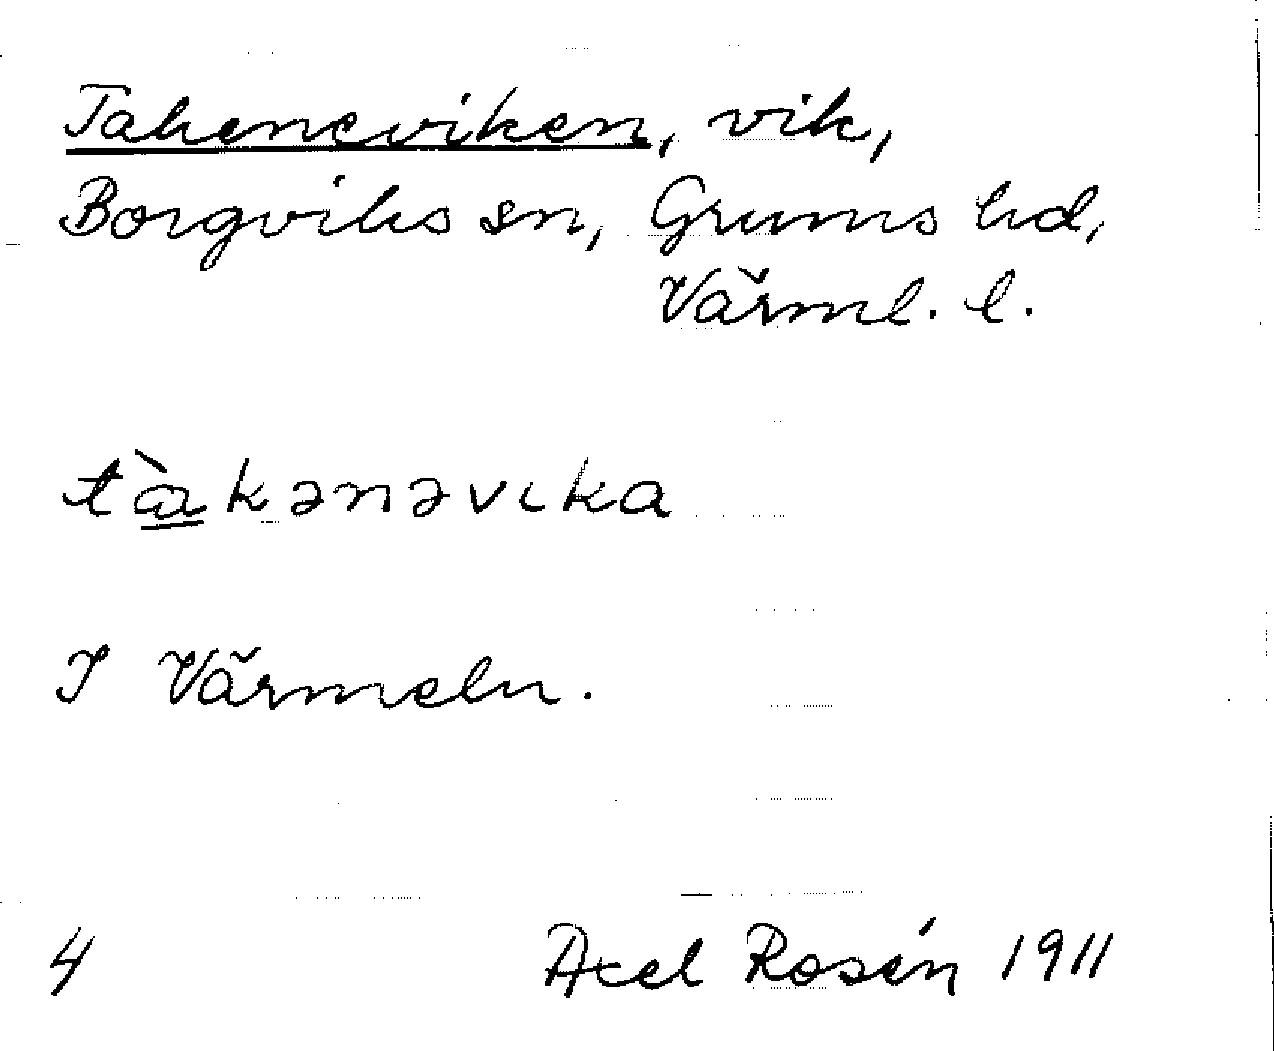 Takeneviken, vik,
Borgviks sn, Grums hd,
Värml. l.
tὰkənəvıka
I Värmeln.
4 Axel Rosén 1911